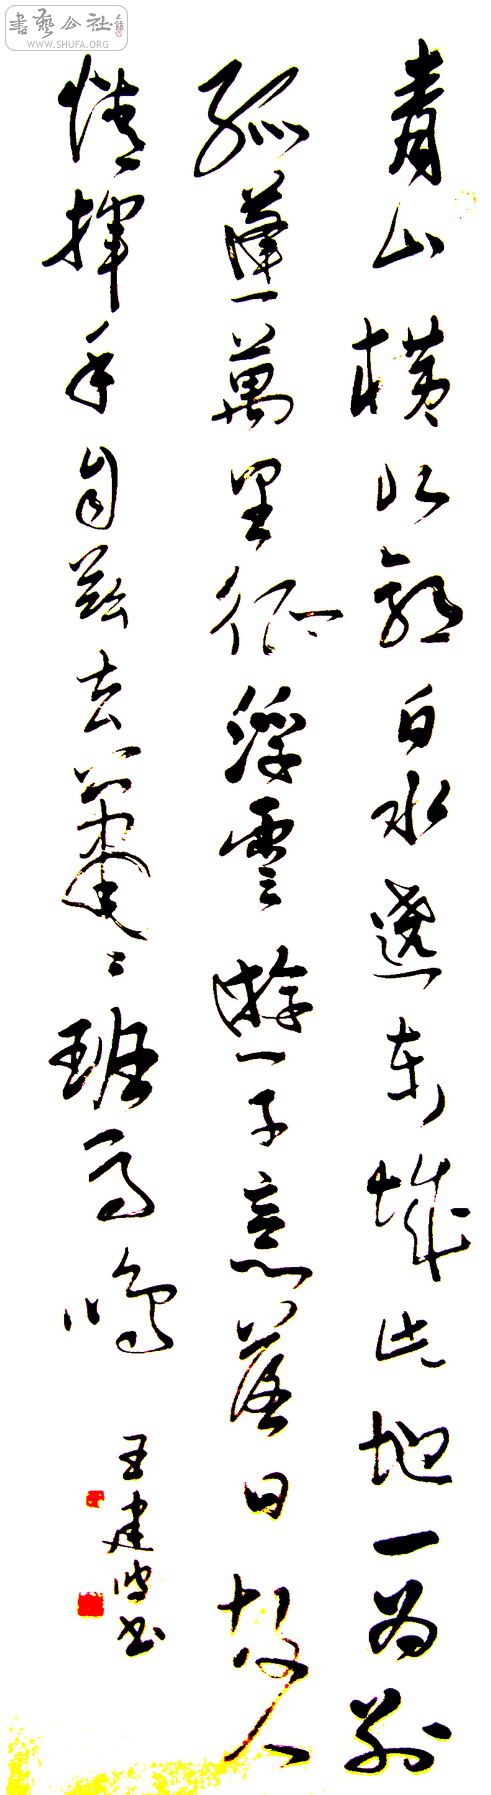 書藝公社
WWW.SHUFA.ORG
青山橫北郭白水遶東城此地一為別
孤蓬萬里征浮雲遊子意落日故人
情揮手自茲去蕭〻班馬鳴
王建波書